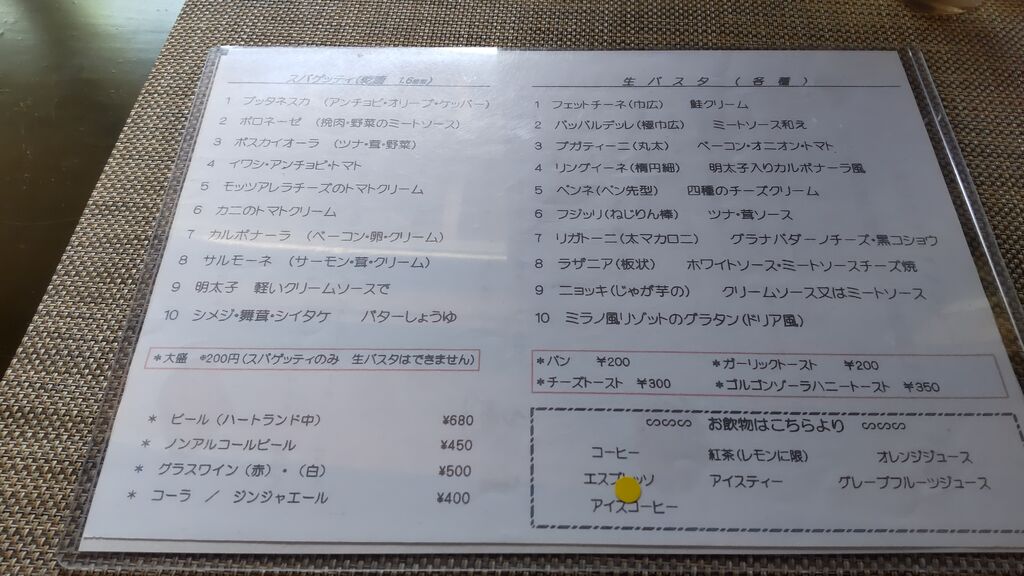 スパゲッティ(乾麺 1.6mm)
1 プッタネスカ (アンチョビ・オリーブ・ケッパー)
2 ボロネーゼ (挽肉・野菜のミートソース)
3 ボスカイオーラ (ツナ・茸・野菜)
4 イワシ・アンチョビ・トマト
5 モッツアレラチーズのトマトクリーム
6 カニのトマトクリーム
7 カルボナーラ (ベーコン・卵・クリーム)
8 サルモーネ (サーモン・茸・クリーム)
9 明太子 軽いクリームソースで
10 シメジ・舞茸・シイタケ バターしょうゆ
*大盛 *200円(スパゲッティのみ 生パスタはできません)
* ビール (ハートランド中) ¥680
* ノンアルコールビール ¥450
* グラスワイン (赤)・(白) ¥500
* コーラ / ジンジャエール ¥400
生パスタ (各種)
1 フェットチーネ(巾広) 鮭クリーム
2 パッパルデッレ(極巾広) ミートソース和え
3 ブガティーニ(丸太) ベーコン・オニオン・トマト
4 リングィーネ(楕円細) 明太子入りカルボナーラ風
5 ペンネ(ペン先型) 四種のチーズクリーム
6 フジッリ(ねじりん棒) ツナ・茸ソース
7 リガトーニ(太マカロニ) グラナパダーノチーズ・黒コショウ
8 ラザニア(板状) ホワイトソース・ミートソースチーズ焼
9 ニョッキ(じゃが芋の) クリームソース又はミートソース
10 ミラノ風リゾットのグラタン(ドリア風)
*パン ¥200 *ガーリックトースト ¥200
*チーズトースト ¥300 *ゴルゴンゾーラハニートースト ¥350
お飲物はこちらより
コーヒー 紅茶(レモンに限) オレンジジュース
エスプレッソ アイスティー グレープフルーツジュース
アイスコーヒー